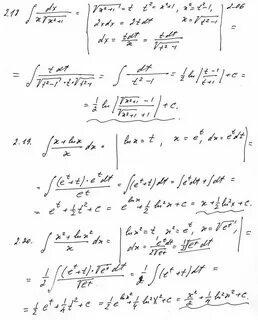 2.18. ∫ dx / (x√(x²+1)) = | √(x²+1) = t t² = x²+1, x² = t²-1, |
2xdx = 2tdt x = √(t²-1)
dx = tdt/x = tdt/√(t²-1) | =
= ∫ tdt / (√(t²-1) · t · √(t²-1)) = ∫ dt/(t²-1) = ½ ln|(t-1)/(t+1)| + c =
= ½ ln|(√(x²+1) - 1)/(√(x²+1) + 1)| + c.
2.19. ∫ (x + ln x)/x dx = | ln x = t, x = e^t, dx = e^t dt | =
= ∫ (e^t + t) · e^t dt / e^t = ∫ (e^t + t) dt = ∫ e^t dt + ∫ t dt =
= e^t + ½ t² + c = e^(ln x) + ½ ln² x + c = x + ½ ln² x + c.
2.20. ∫ (x² + ln x²)/x dx = | ln x² = t, x² = e^t, x = √(e^t)
= ½ ∫ (e^t + t) · √(e^t) dt / √(e^t) = ½ ∫ (e^t + t) dt =
= ½ e^t + ¼ t² + c = ½ e^(ln x²) + ¼ ln² x² + c = x²/2 + ¼ ln² x² + c.